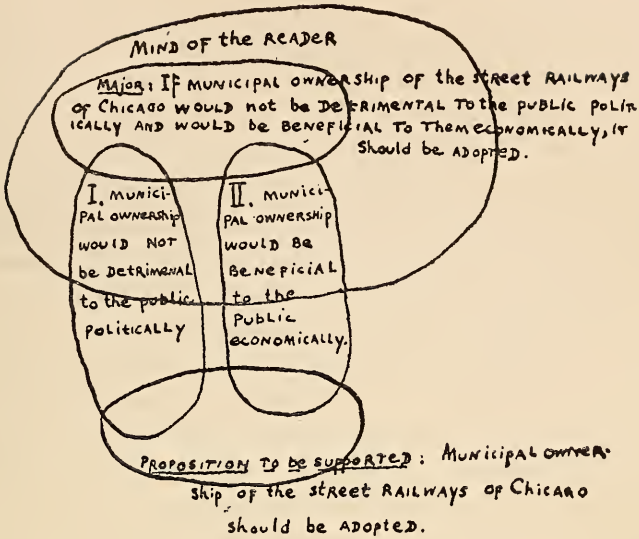 MIND OF the READER
MAJOR: IF MUNICIPAL OWNERSHIP OF the street RAILWAYS
of CHICAGO WOULD not be DETRIMENTAL To the public POLIT-
ICALLY AND WOULD be BENEFICIAL TO Them economically, IT
should be ADOPTED.
I. MUNICI-
PAL OWNERSHIP
WOULD NOT
be DETRIMENAL
to the public
POLITICALLY
II. MUNICI-
PAL OWNERSHIP
WOULD BE
BENEFICIAL
to the
PUBLIC
ECONOMICALLY.
PROPOSITION TO be SUPPORTED: MUNICIPAL OWNER-
SHIP of the STREET RAILWAYS OF CHICAGO
should be ADOPTED.